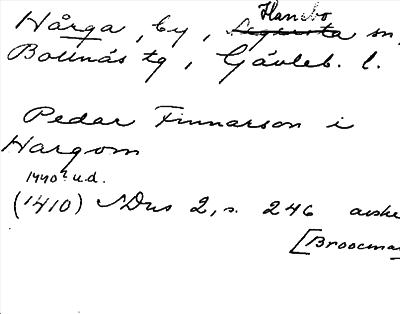 Hårga, by, Hanebo sn,
Bollnäs tg, Gävleb. l.
Pedar Finnarson i
Hargom
1440? u.d.
(1410) SDns 2, s. 246 avskr
[Brooeman